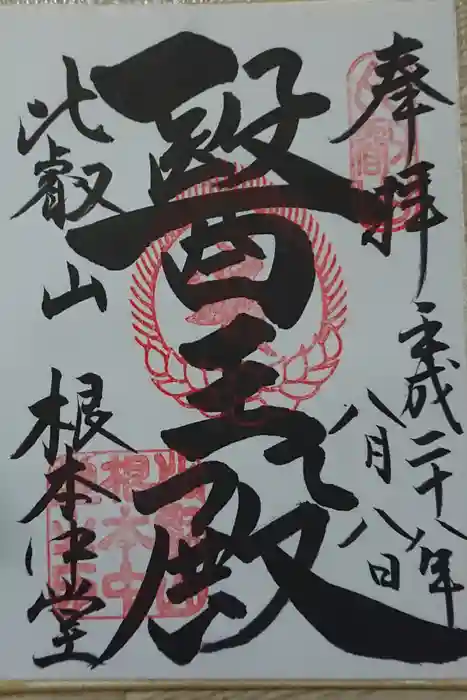 奉拝
平成二十八年
八月八日
醫王殿
比叡山
根本中堂